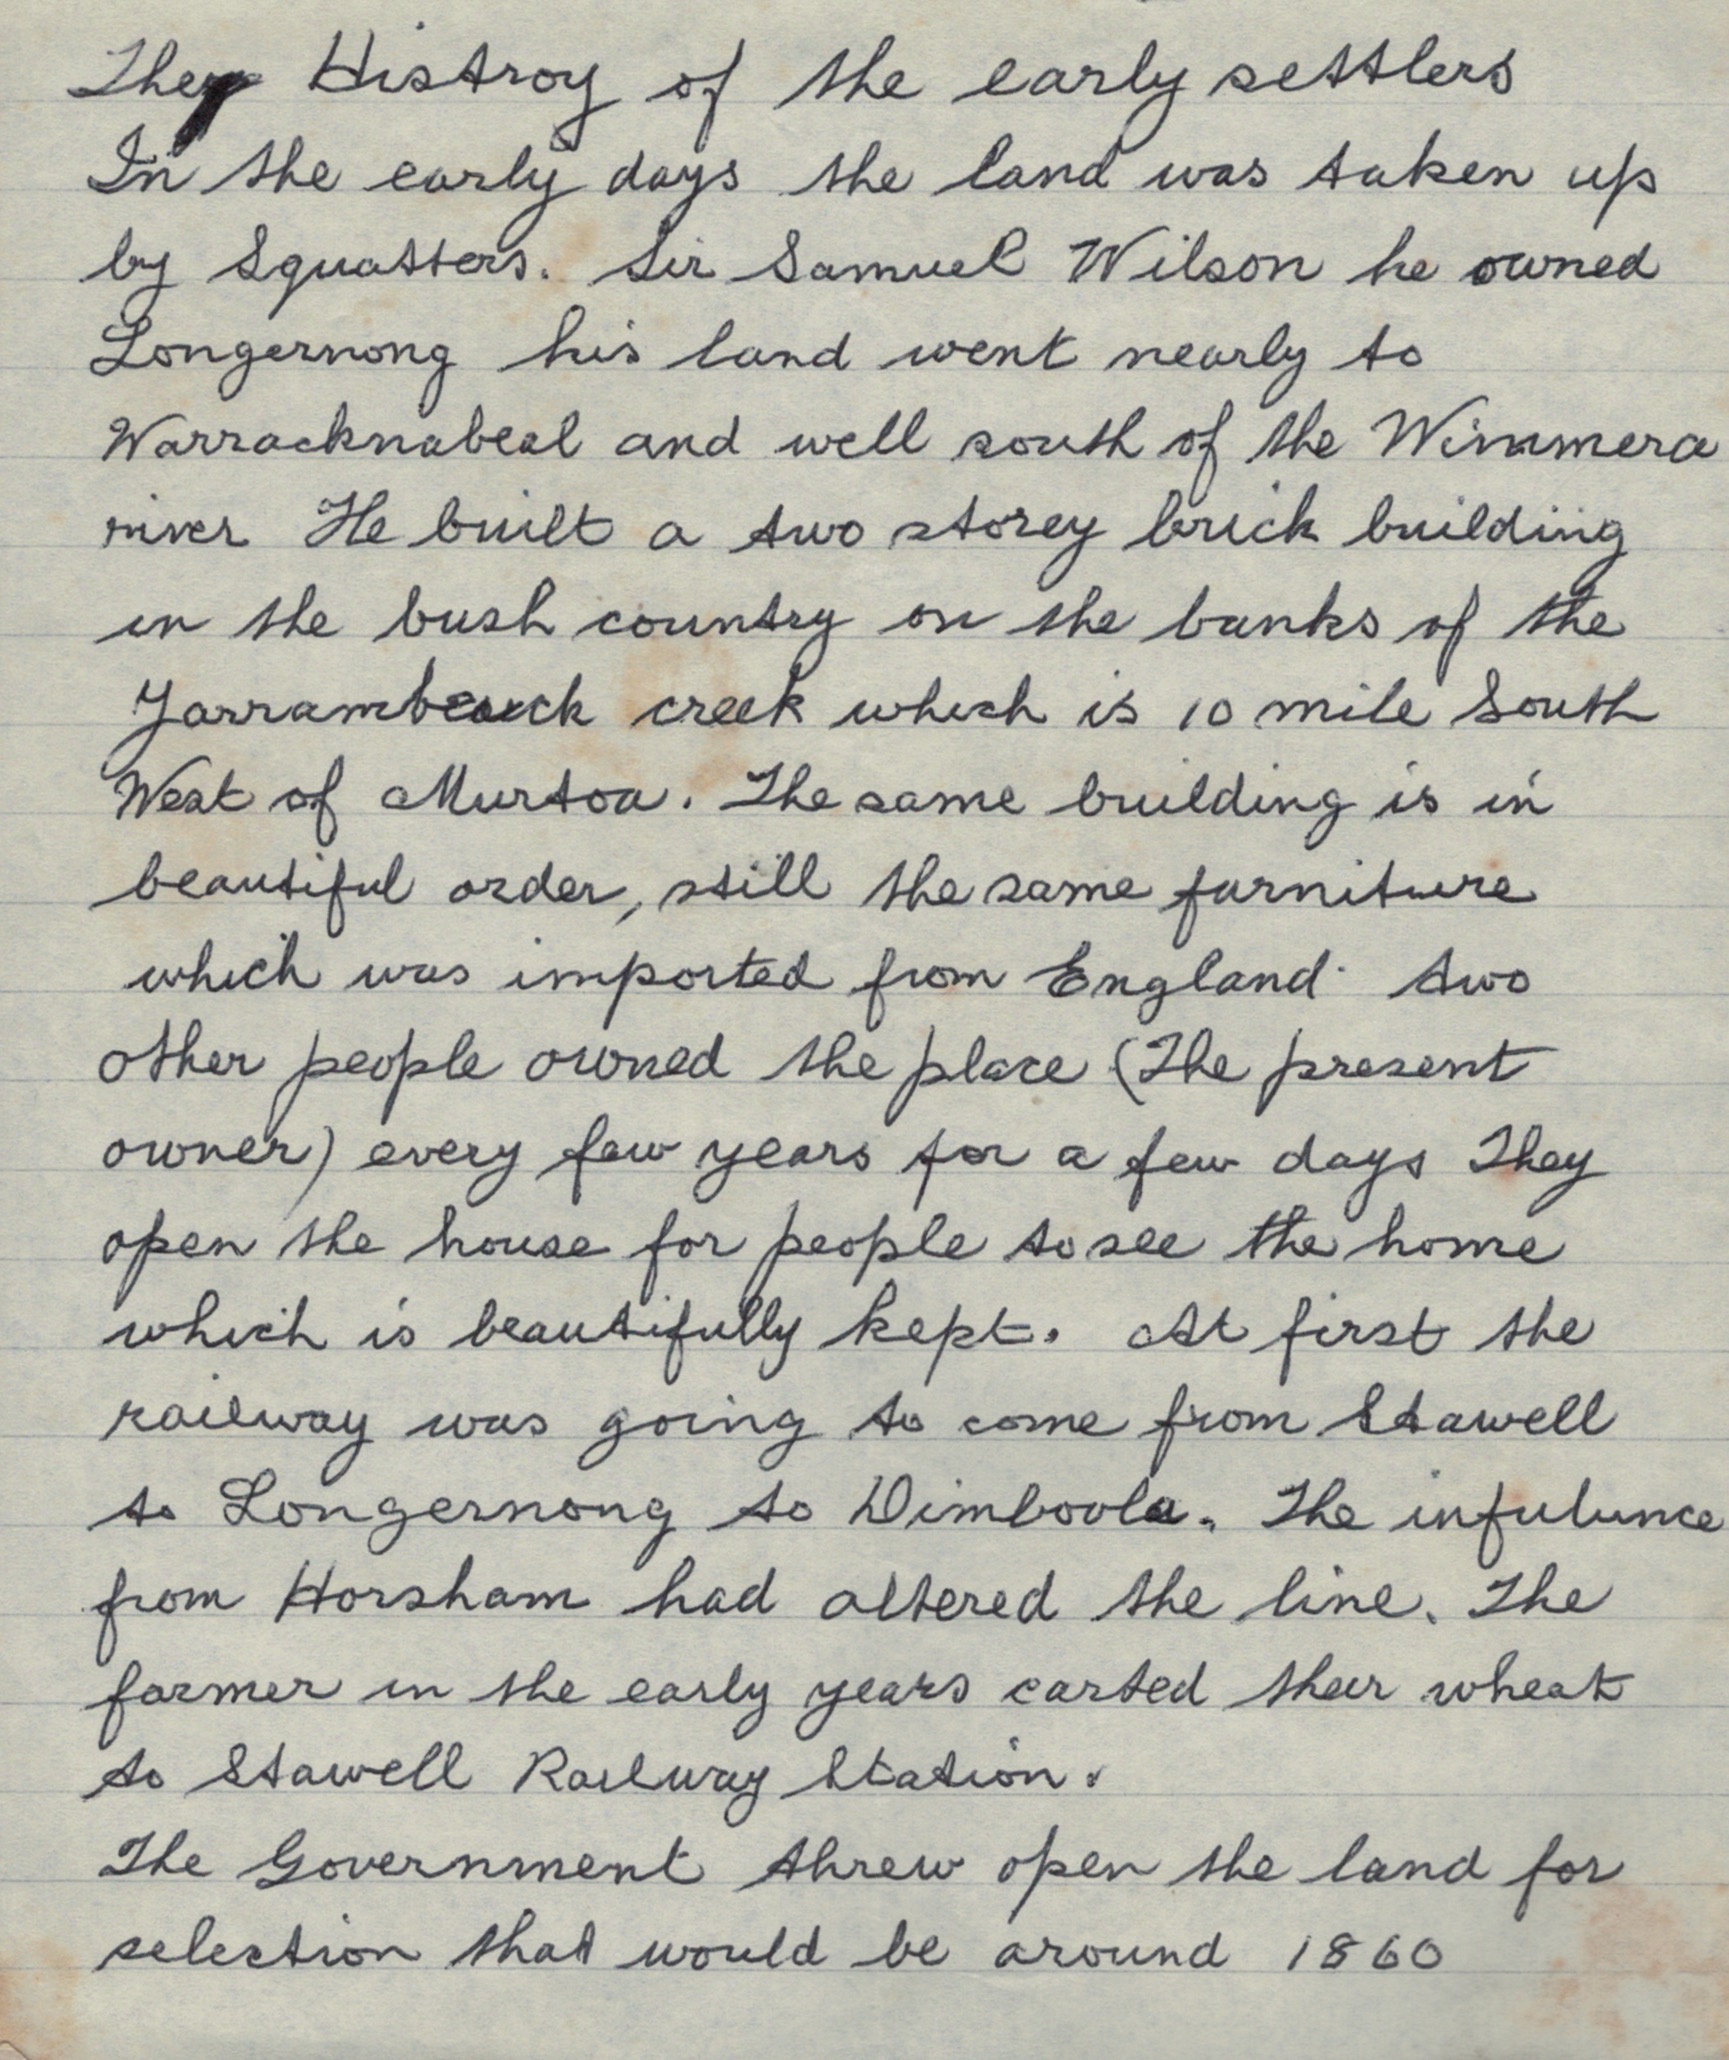 The Histroy of the early settlers
In the early days the land was taken up
by Squatters. Sir Samuel Wilson he owned
Longernong his land went nearly to
Warracknabeal and well south of the Wimmera
river He built a two storey brick building
in the bush country on the banks of the
Yarrambeauck creek which is 10 mile South
West of Murtoa. The same building is in
beautiful order, still the same furniture
which was imported from England. two
other people owned the place (The present
owner) every few years for a few days They
open the house for people to see the home
which is beautifully kept. At first the
railway was going to come from Stawell
to Longernong to Dimboola. The infulunce
from Horsham had altered the line. The
farmer in the early years carted their wheat
to Stawell Railway Station.
The Government threw open the land for
selection that would be around 1860